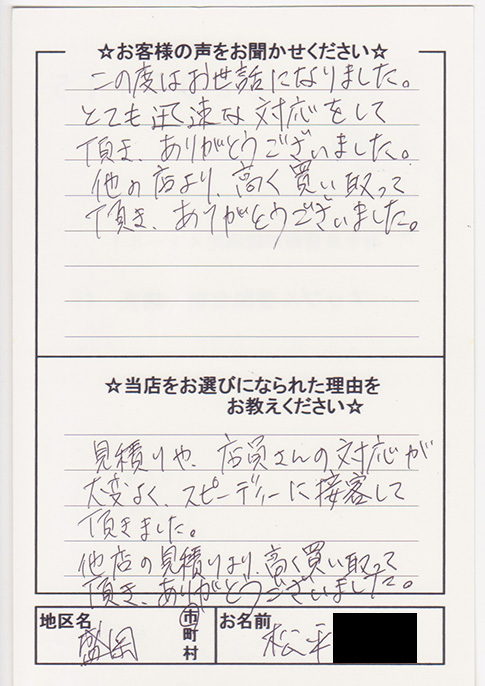 ☆お客様の声をお聞かせください☆
この度はお世話になりました。
とても迅速な対応をして
頂き、ありがとうございました。
他の店より、高く買い取って
頂き、ありがとうございました。
☆当店をお選びになられた理由を
お教えください☆
見積りや、店員さんの対応が
大変よく、スピーディーに接客して
頂きました。
他店の見積りより、高く買い取って
頂き、ありがとうございました。
地区名 盛岡 市町村 お名前 松平